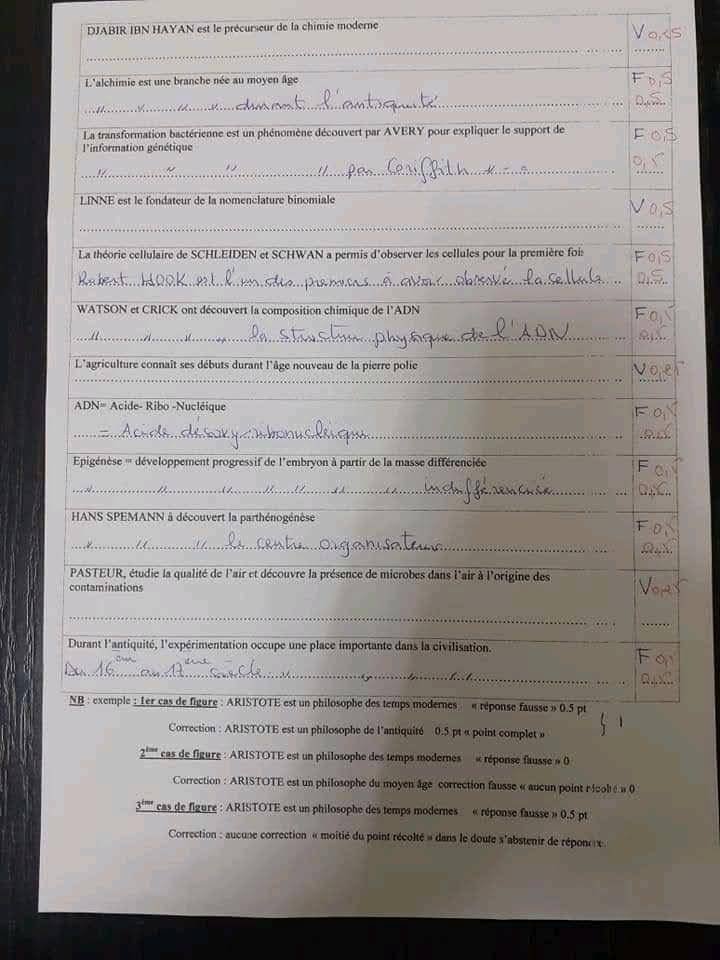 DJABIR IBN HAYAN est le précurseur de la chimie moderne
V 0,25
L'alchimie est une branche née au moyen âge
F 0,5
" " " " durant l'antiquité
0,5
La transformation bactérienne est un phénomène découvert par AVERY pour expliquer le support de
F 0,5
l'information génétique
" " " " par Griffith " - "
0,5
LINNE est le fondateur de la nomenclature binomiale
V 0,5
La théorie cellulaire de SCHLEIDEN et SCHWAN a permis d'observer les cellules pour la première fois
F 0,5
Robert HOOK est l'un des premiers à avoir observé la cellule
0,5
WATSON et CRICK ont découvert la composition chimique de l'ADN
F 0,5
" " " " la structure physique de l'ADN
0,5
L'agriculture connaît ses débuts durant l'âge nouveau de la pierre polie
V 0,25
ADN= Acide- Ribo -Nucléique
F 0,5
= Acide désoxy-ribonucléique
0,5
Epigénèse = développement progressif de l'embryon à partir de la masse différenciée
F 0,5
" " " " " " " indifférenciée
0,5
HANS SPEMANN à découvert la parthénogénèse
F 0,5
" " " le centre organisateur
0,5
PASTEUR, étudie la qualité de l'air et découvre la présence de microbes dans l'air à l'origine des
V 0,25
contaminations
Durant l'antiquité, l'expérimentation occupe une place importante dans la civilisation.
F 0,5
Du 16ème au 17ème siècle " " " "
0,5
NB : exemple : 1er cas de figure : ARISTOTE est un philosophe des temps modernes « réponse fausse » 0.5 pt
} 1
Correction : ARISTOTE est un philosophe de l'antiquité 0.5 pt « point complet »
2ème cas de figure : ARISTOTE est un philosophe des temps modernes « réponse fausse » 0
Correction : ARISTOTE est un philosophe du moyen âge correction fausse « aucun point récolté » 0
3ème cas de figure : ARISTOTE est un philosophe des temps modernes « réponse fausse » 0.5 pt
Correction : aucune correction « moitié du point récolté » dans le doute s'abstenir de répondre.